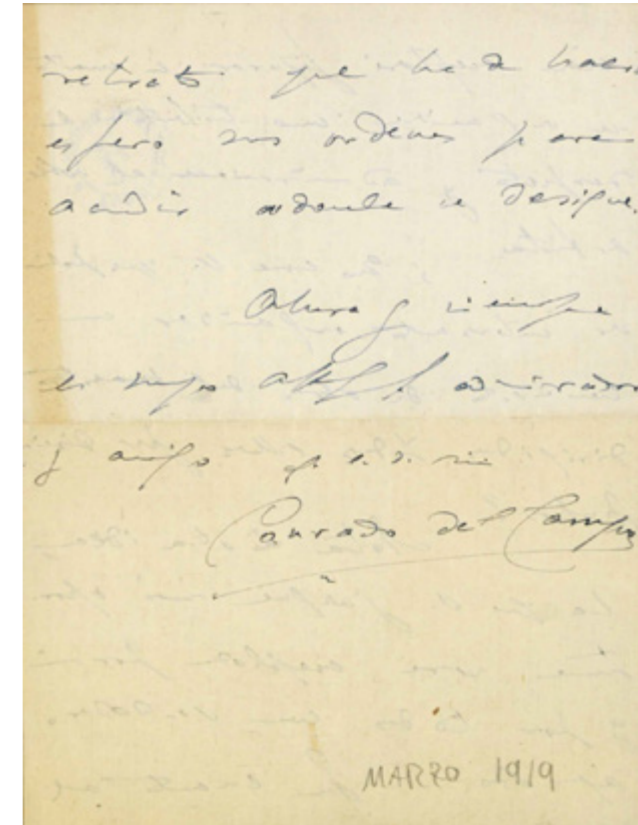 retrato que he de hacer
espero sus ordenes para
acudir adonde se designe.
Ahora y siempre
es suyo admirador
y amigo q. e. s. m.
Conrado del Campo
MARZO 1919